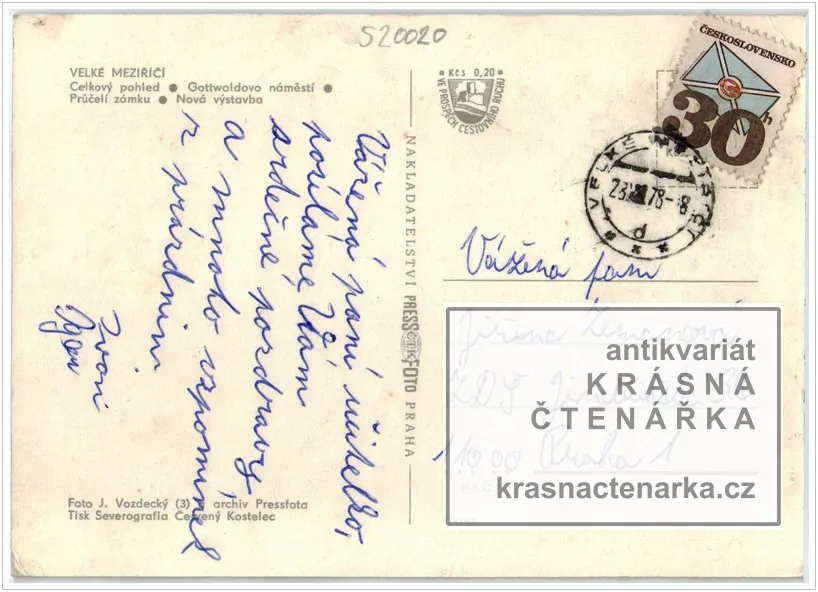 520020
VELKÉ MEZIŘÍČÍ
Celkový pohled ● Gottwaldovo náměstí ●
Průčelí zámku ● Nová výstavba
Kčs 0,20
VE PROSPĚCH CESTOVNÍHO RUCHU
ČESKOSLOVENSKO
30h
VELKÉ
23. 78-8
d
Vážená paní učitelko,
posíláme Vám
srdečné pozdravy
a mnoho vzpomínek
z prázdnin
Igor
NAKLADATELSTVÍ PRESSFOTO PRAHA
ČTK
Vážená paní
Jiřina
ZDŠ
11000 Praha 1
antikvariát
KRÁSNÁ
ČTENÁŘKA
krasnactenarka.cz
Foto J. Vozdecký (3) archiv Pressfota
Tisk Severografia Červený Kostelec